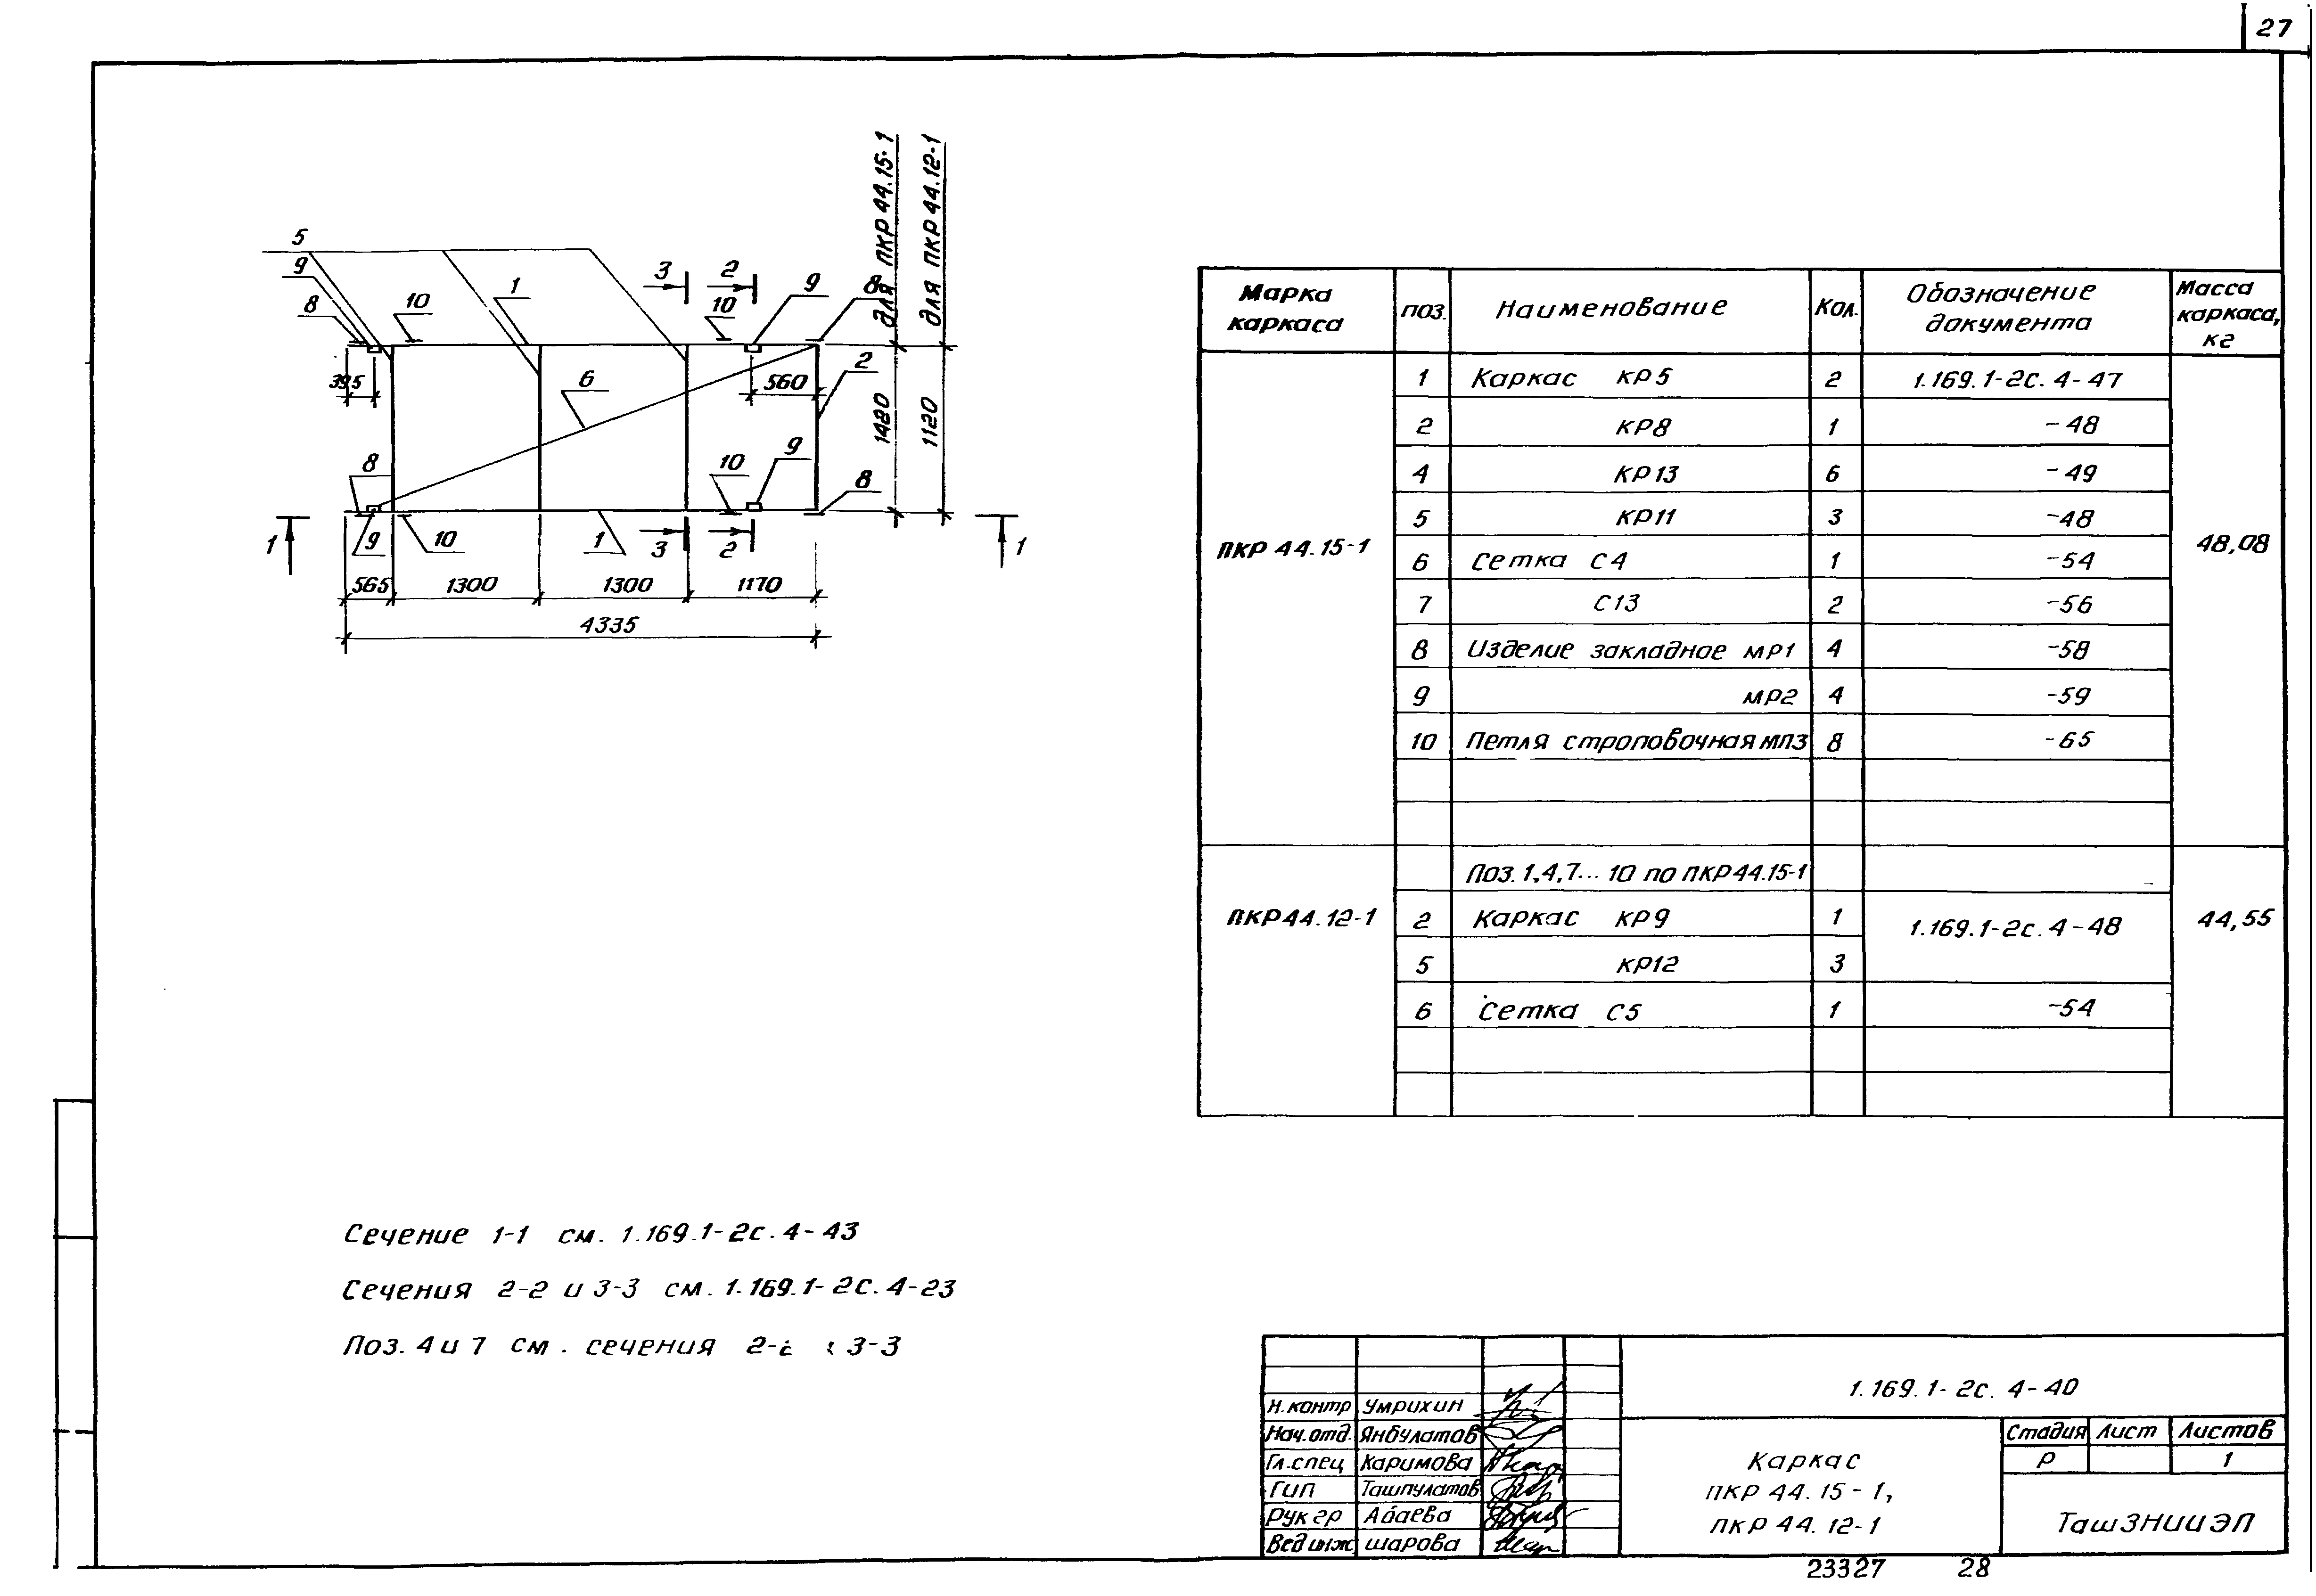 27
для ПКР 44.15-1
для ПКР 44.12-1
5
9
8
10
1
3
2
10
9
8
395
6
560
2
1480
1120
8
10
9
8
1
9
10
1
3
2
1
565
1300
1300
1170
4335
Марка каркаса
поз.
Наименование
Кол.
Обозначение документа
Масса каркаса, кг
ПКР 44.15-1
48,08
1 Каркас КР5 2 1.169.1-2с.4-47
2 КР8 1 -48
4 КР13 6 -49
5 КР11 3 -48
6 Сетка С4 1 -54
7 С13 2 -56
8 Изделие закладное МР1 4 -58
9 МР2 4 -59
10 Петля строповочная МП3 8 -65
ПКР44.12-1
44,55
Поз. 1,4,7... 10 по ПКР44.15-1
2 Каркас КР9 1 1.169.1-2с.4-48
5 КР12 3
6 Сетка С5 1 -54
Сечение 1-1 см. 1.169.1-2с.4-43
Сечения 2-2 и 3-3 см. 1.169.1-2с.4-23
Поз. 4 и 7 см. сечения 3-3
Н.контр Умрихин
Нач.отд. Янбулатов
Гл.спец Каримова
Гип Ташпулатов
Рук гр Абаева
Вед инж Шарова
1.169.1-2с.4-40
Каркас
ПКР 44.15-1,
ПКР 44.12-1
Стадия Лист Листов
Р 1
ТашЗНИИЭП
23327 28